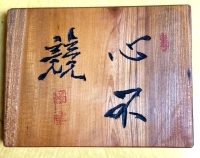 心不
競